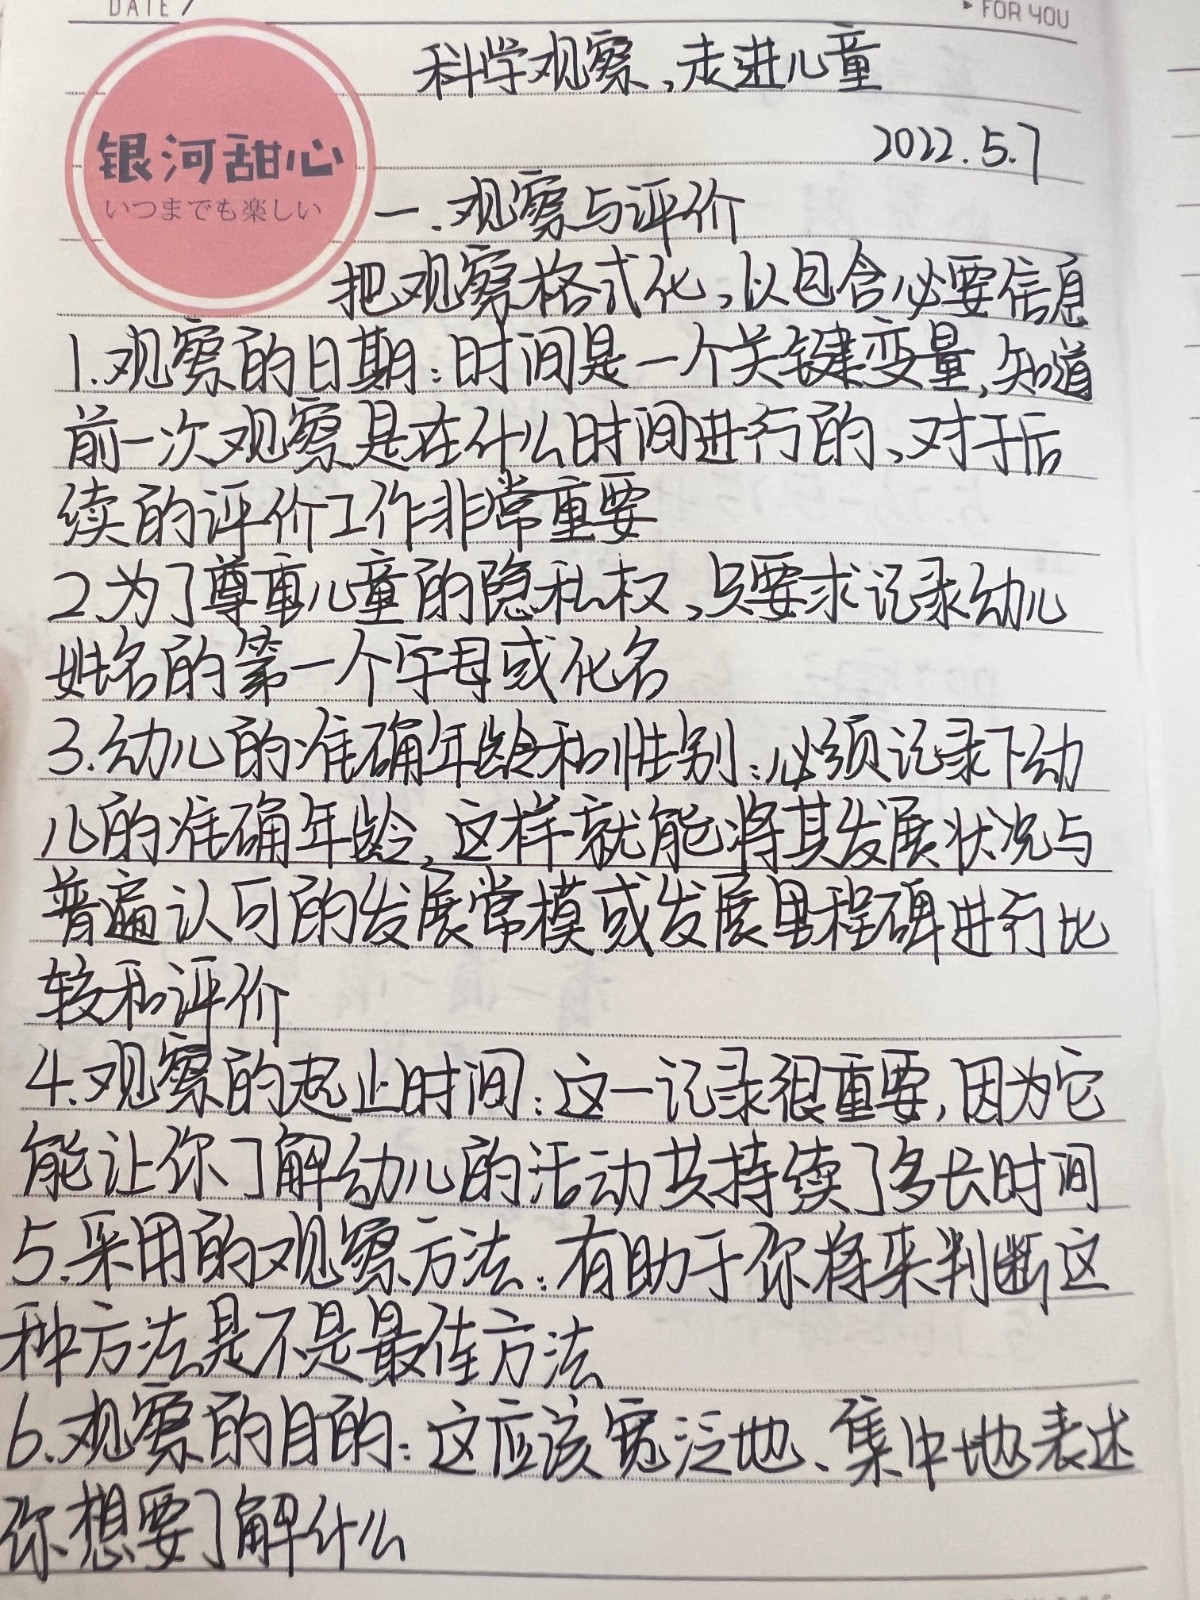 DATE /
FOR YOU
科学观察,走进儿童
银河甜心
いつまでも楽しい
2022.5.7
一.观察与评价
把观察格式化,以包含必要信息
1.观察的日期:时间是一个关键变量,知道
前一次观察是在什么时间进行的、对于后
续的评价工作非常重要
2.为了尊重儿童的隐私权,只要求记录幼儿
姓名的第一个字母或化名
3.幼儿的准确年龄和性别:必须记录下幼
儿的准确年龄,这样就能将其发展状况与
普遍认可的发展常模或发展里程碑进行比
较和评价
4.观察的起止时间:这一记录很重要,因为它
能让你了解幼儿的活动共持续了多长时间
5.采用的观察方法:有助于你将来判断这
种方法是不是最佳方法
6.观察的目的:这应该宽泛地、集中地表述
你想要了解什么